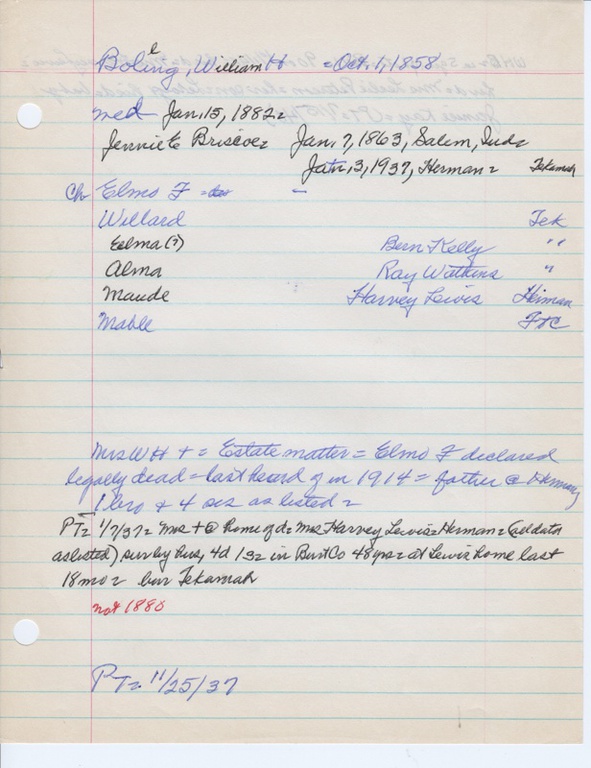 Boling, William H = Oct. 1, 1858
e
med Jan. 15, 1882 =
Jennie E Briscoe = Jan. 7, 1863, Salem, Ind =
Jan. 3, 1937, Herman = Tekamah
Ch Elmo F = –
Willard Tek
Eelma (?) Bern Kelly "
Alma Ray Watkins "
Maude Harvey Lewis Herman
Mable FtC
Mrs W H + = Estate matter = Elmo F declared
legally dead = last heard of in 1914 = father @ Herman,
1 bro & 4 sis as listed =
PT = 1/7/37 = Mrs + @ home of d = Mrs Harvey Lewis = Herman = (all data
as listed) surv by hus, 4d 1s = in Burt Co 48 yrs = at Lewis home last
18 mo = bur Tekamah
not 1880
PT = 11/25/37